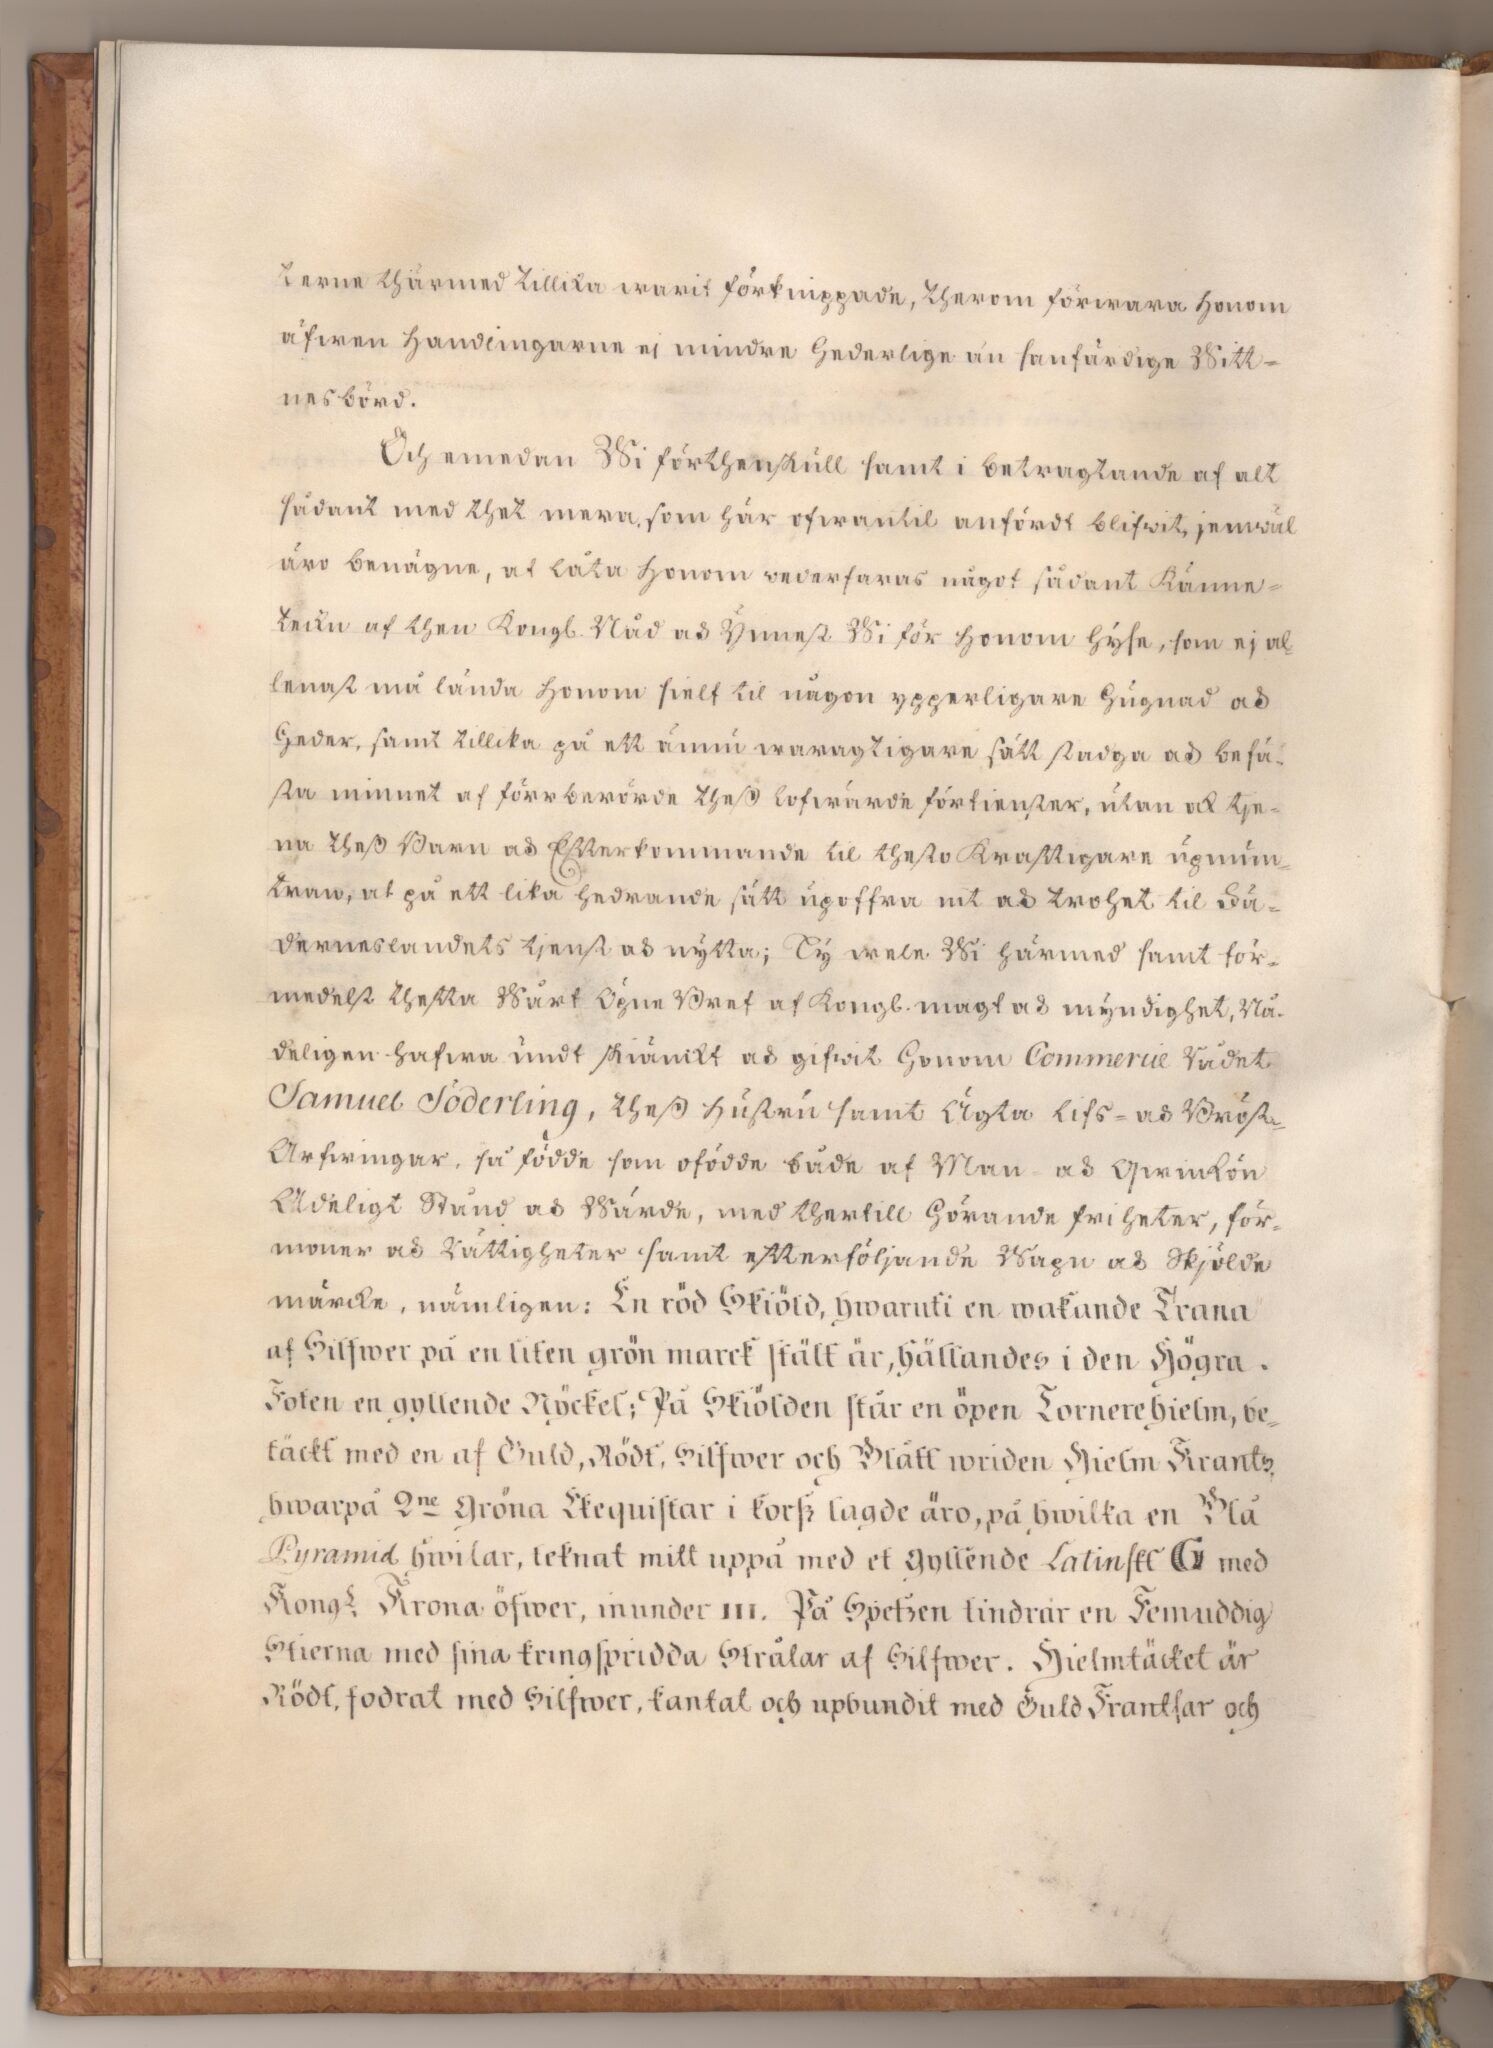 terne thärmed tillika warit förknippade, therom förwara honom
äfwen Handlingarne ej mindre hederlige än sanfärdige Witt-
nesbörd.
Och emedan Wi förthenskull samt i betragtande af alt
sådant med thet mera, som här ofwantil anfördt blifwit, jemwäl
äro benägne, at låta honom wederfaras något sådant Känne-
teckn af then Kongl. Nåd och Ynnest Wi för honom hyse, som ej al-
lenast må lända honom sielf til någon ypperligare hugnad och
heder, samt tillika på ett ännu waragtigare sätt stadga och befä-
sta minnet af förrberörde theß lofwärde förtienster, utan ock tje-
na theß Barn och Efterkommande til thesto Kraftigare upmun-
tran, at på ett lika hedrande sätt upoffra nit och trohet til Fä-
derneslandets tjenst och nytta; Ty wele Wi härmed samt för-
medelst thetta Wårt Öpne Bref af Kongl. magt och myndighet, Nå-
deligen hafwa undt skiänckt och gifwit honom Commercie Rådet
Samuel Söderling, theß Hustru samt Ägta Lifs- och Bröst-
Arfwingar, så födde som ofödde både af Man- och Qwinkön
Adeligt Stånd och Wärde, med thertill hörande friheter, för-
moner och Rättigheter samt efterföljande Wapn och Skjölde
märcke, nämligen: En röd Skiöld, hwaruti en wakande Trana
af Silfwer på en liten grön marck stält är, hållandes i den Högra
Foten en gyllende Nyckel; På Skiölden står en öpen Tornerehielm, be-
täckt med en af Guld, Rödt, Silfwer och Blått wriden Hielm Krants,
hwarpå 2ne Gröna Ekequistar i korß lagde äro, på hwilka en Blå
Pyramid hwilar, teknat mitt uppå med et Gyllende Latinskt G med
Kongl. Krona öfwer, inunder III. På Spetsen tindrar en Femuddig
Stierna med sina kringspridda Strålar af Silfwer. Hielmtäcket är
Rödt, fodrat med Silfwer, kantat och upbundit med Guld Frantsar och